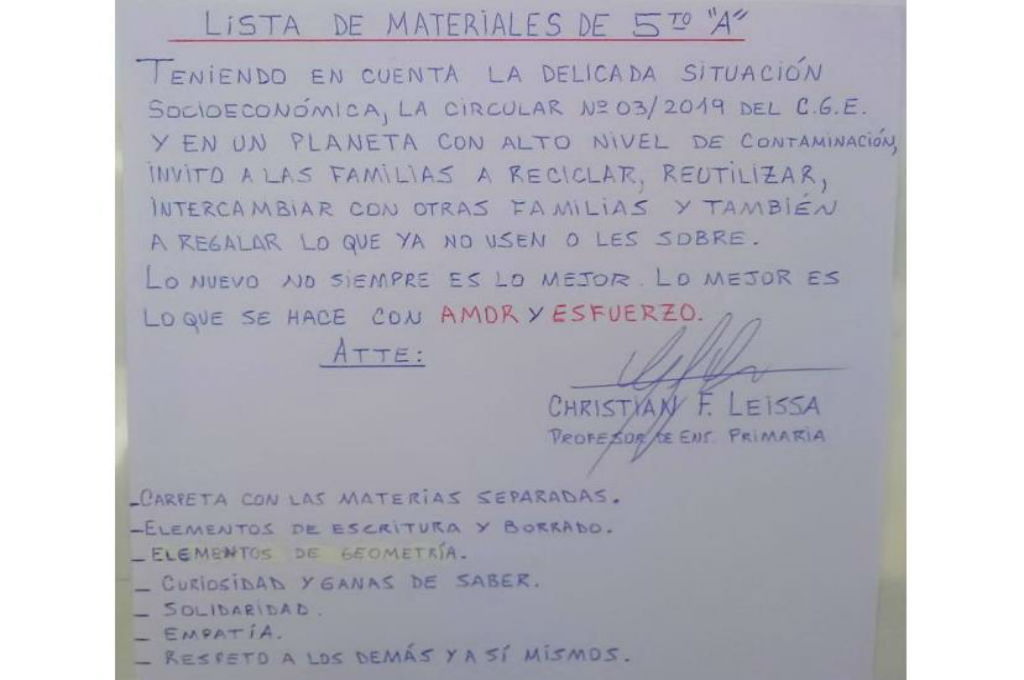 LISTA DE MATERIALES DE 5TO "A"
TENIENDO EN CUENTA LA DELICADA SITUACIÓN
SOCIOECONÓMICA, LA CIRCULAR Nº 03/2019 DEL C.G.E.
Y EN UN PLANETA CON ALTO NIVEL DE CONTAMINACIÓN,
INVITO A LAS FAMILIAS A RECICLAR, REUTILIZAR,
INTERCAMBIAR CON OTRAS FAMILIAS Y TAMBIÉN
A REGALAR LO QUE YA NO USEN O LES SOBRE.
LO NUEVO NO SIEMPRE ES LO MEJOR. LO MEJOR ES
LO QUE SE HACE CON AMOR Y ESFUERZO.
ATTE:
CHRISTIAN F. LEISSA
PROFESOR DE ENS. PRIMARIA
- CARPETA CON LAS MATERIAS SEPARADAS.
- ELEMENTOS DE ESCRITURA Y BORRADO.
- ELEMENTOS DE GEOMETRÍA.
- CURIOSIDAD Y GANAS DE SABER.
- SOLIDARIDAD.
- EMPATÍA.
- RESPETO A LOS DEMÁS Y A SÍ MISMOS.